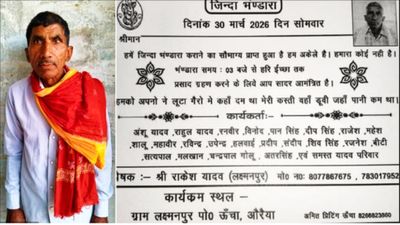 जिन्दा भण्डारा
दिनांक 30 मार्च 2026 दिन सोमवार
श्रीमान
हमें जिन्दा भण्डारा कराने का सौभाग्य प्राप्त हुआ है हम अकेले है। हमारा कोई नही है।
भण्डारा समय : 03 बजे से हरि ईच्छा तक
प्रसाद ग्रहण करने के लिए आप सादर आमंत्रित है।
हमको अपनो ने लूटा गैरो मे कहाँ दम था मेरी कस्ती वहाँ डूबी जहाँ पानी कम था।
कार्यकर्ता:
अंशू यादव, राहुल यादव, रनवीर, विनोद, पान सिंह, दीप सिंह, राजेश, महेश
शालू, महावीर, रविन्द्र, उपेन्द्र, हलवाई, प्रदीप, संदीप, शिव सिंह, रजनेश, बीटी
सत्यपाल, मलखान, चन्द्रपाल गोलू, अतरसिंह, एवं समस्त यादव परिवार
षक : श्री राकेश यादव (लक्ष्मनपुर) मो० नं०: 8077867675, 783017952
कार्यकम स्थल -
ग्राम लक्ष्मनपुर पो० ऊँचा, औरैया
अमित प्रिंटिंग ऊँचा